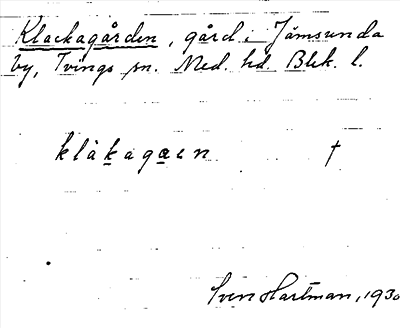 Klackagården, gård i Jämsunda
by, Tvings sn. Med. hd. Blek. l.
klàkagæen †
Sven Hartman, 1930